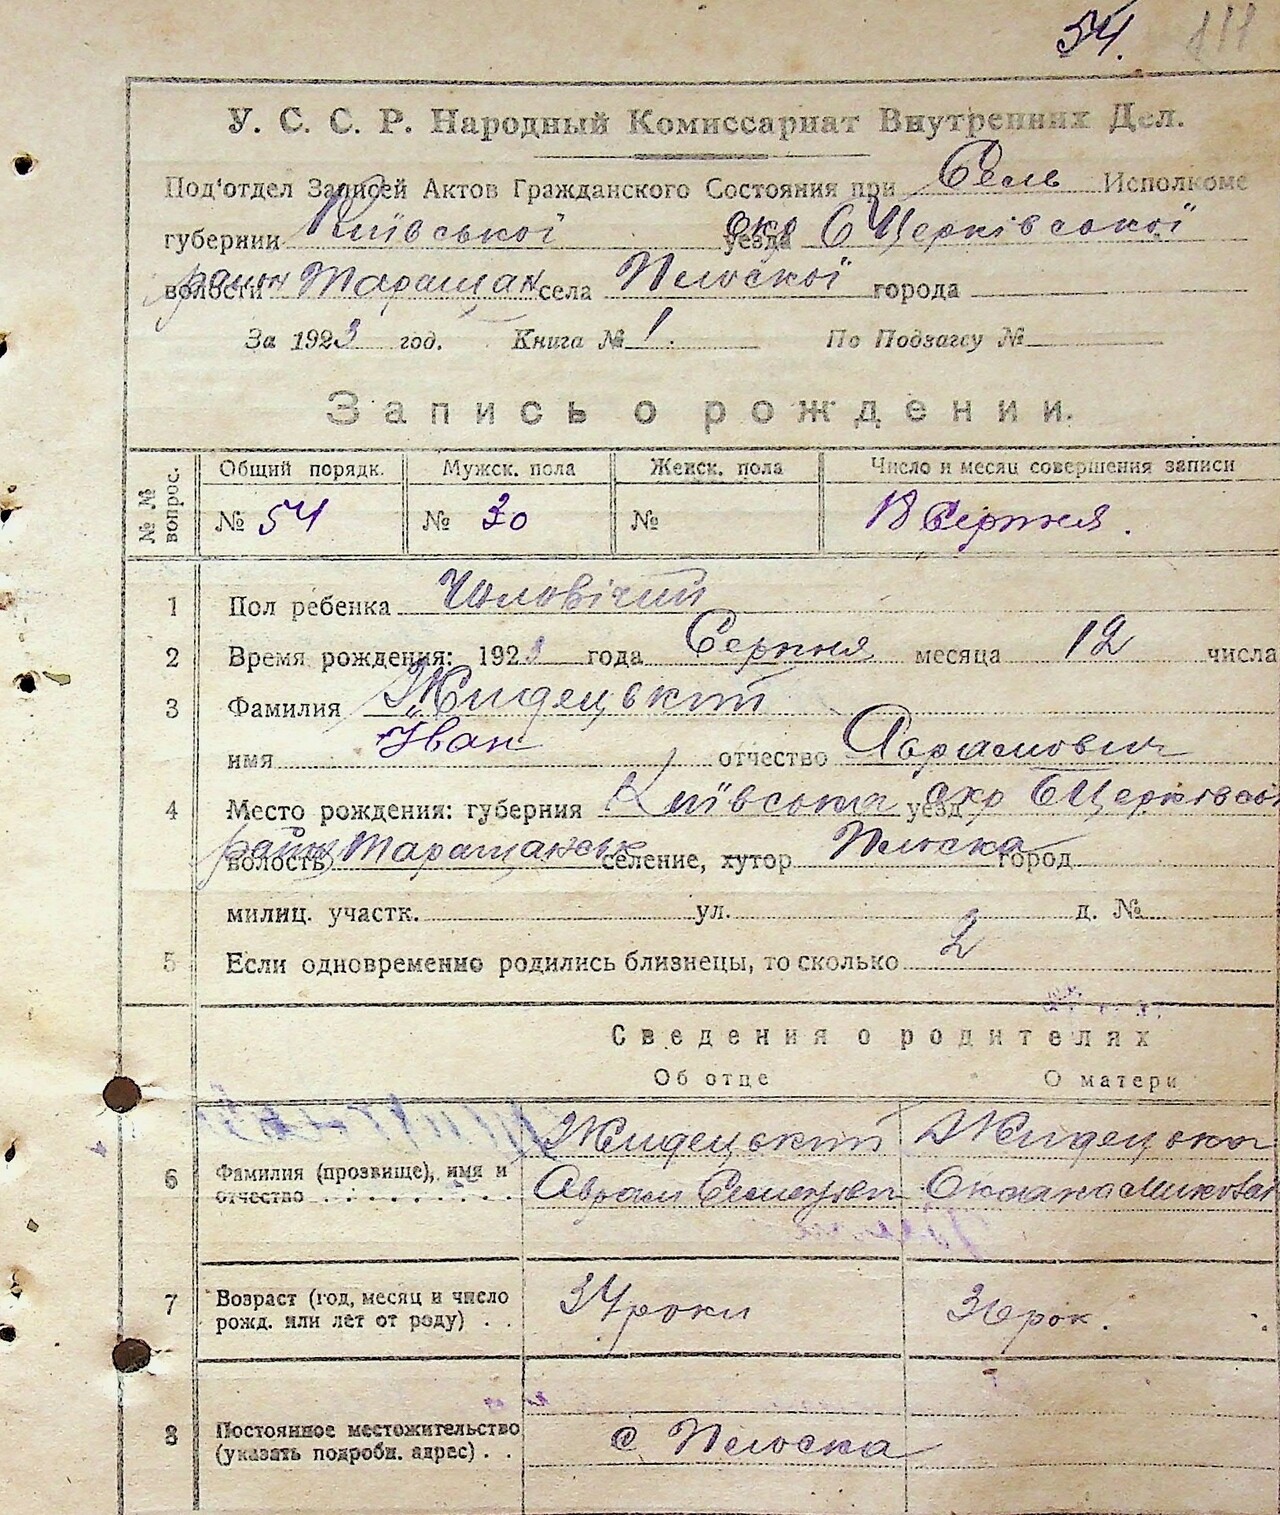 54. 111
У. С. С. Р. Народный Комиссариат Внутренних Дел.
Под'отдел Записей Актов Гражданского Состояния при Сель Исполкоме
губернии Київської уезда окр БЦерківської
волости район Таращан села Плоскої города
За 1923 год. Книга № 1. По Подзагсу №
Запись о рождении.
№№ вопрос. Общий порядк. Мужск. пола Женск. пола Число и месяц совершения записи
№ 54 № 30 № 18 Серпня.
1 Пол ребенка Чоловічий
2 Время рождения: 1923 года Серпня месяца 12 числа
3 Фамилия Жидецький
имя Іван отчество Аврамович
4 Место рождения: губерния Київська уезд окр БЦерківсь
волость район Таращанськ селение, хутор Плоска город
милиц. участк. ул. д. №
5 Если одновременно родились близнецы, то сколько 2
Сведения о родителях
Об отце О матери
Жидецький Жидецька
6 Фамилия (прозвище), имя и
отчество Аврам Семенови Оксана Миколаї
7 Возраст (год, месяц и число
рожд. или лет от роду) . . 34 роки 36 рок.
8 Постоянное местожительство
(указать подробн. адрес) . . с Плоска